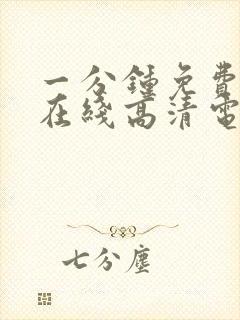 一分鍾免費
在綫高清電
七分塵